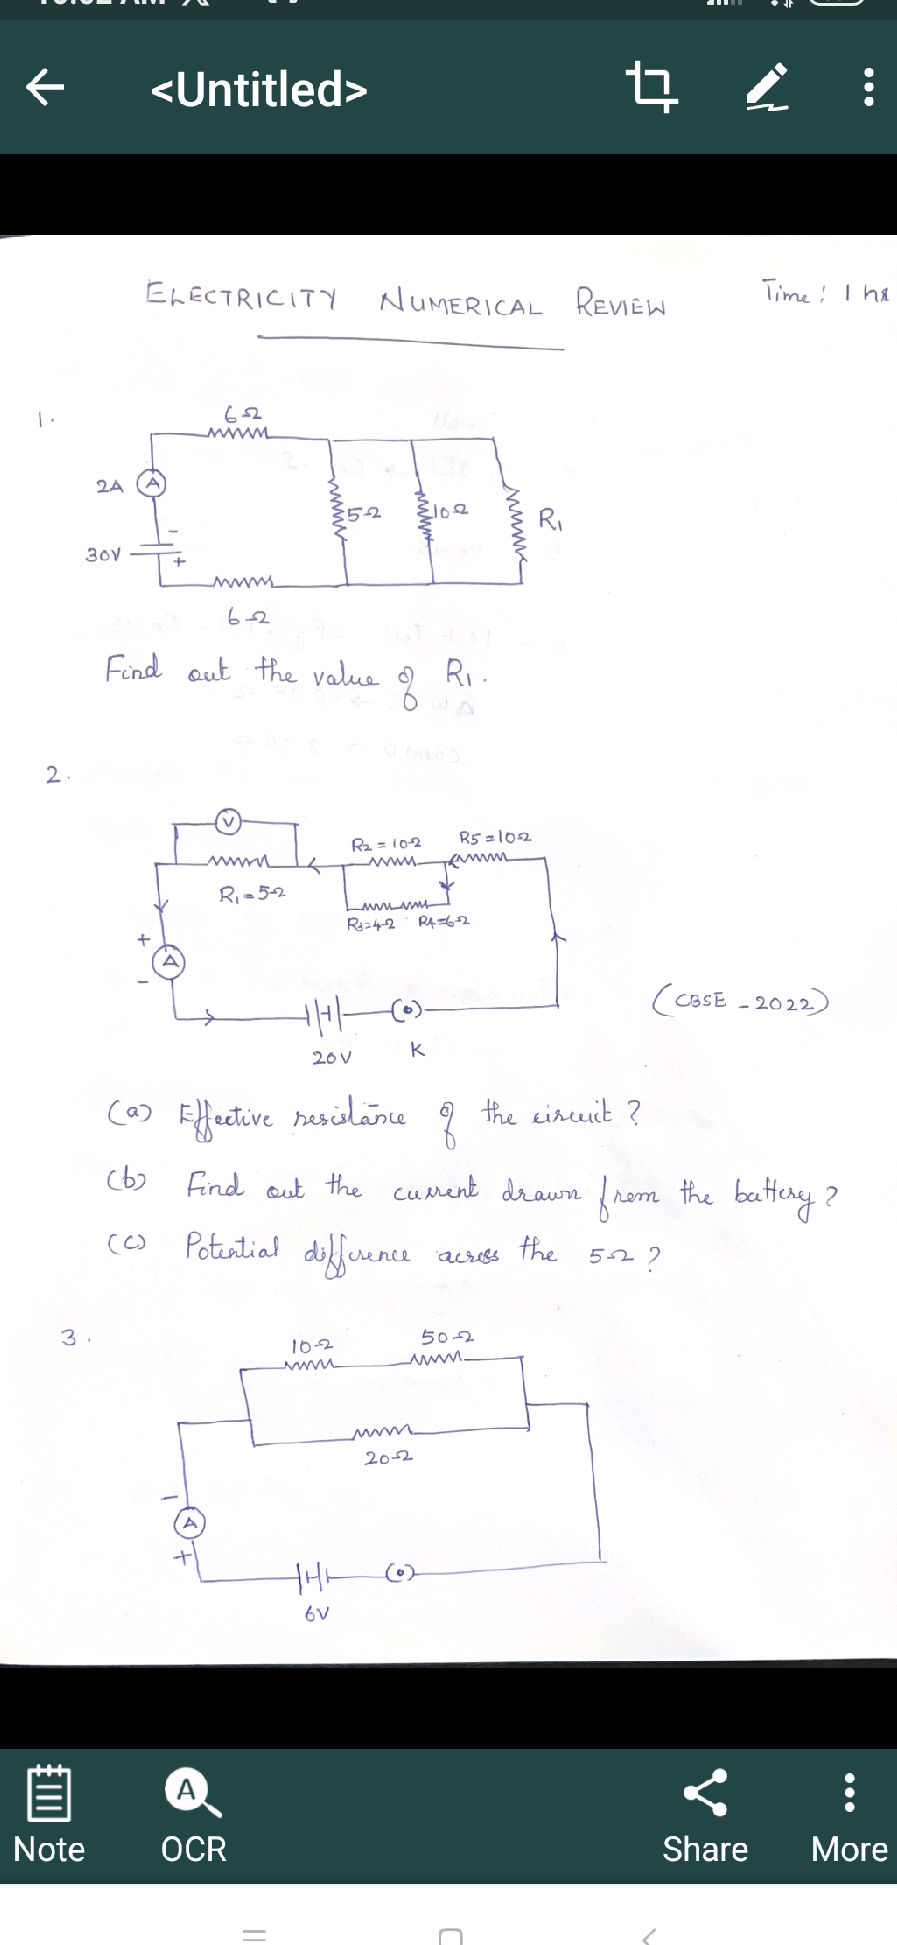 <Untitled>
ELECTRICITY NUMERICAL REVIEW
Time: 1 hr
1.
6Ω
2A
A
5Ω
10Ω
R1
30V
-
+
6Ω
Find out the value of R1.
2.
V
R2=10Ω
R5=10Ω
R1=5Ω
R3=4Ω
R4=6Ω
+
A
-
20V
K
(CBSE - 2022)
(a) Effective resistance of the circuit?
(b) Find out the current drawn from the battery?
(c) Potential difference across the 5Ω?
3.
10Ω
50Ω
20Ω
-
A
+
6V
Note
A
OCR
Share
More